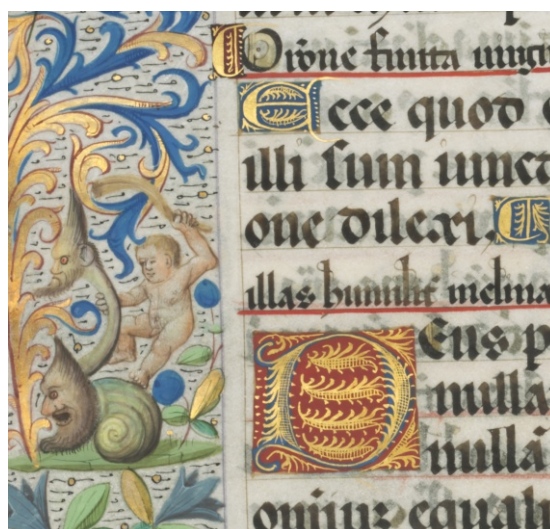 Orōne finita uirgi
Ecce quod c
illi sum iunct
one dilexi. T
illas humilit inclina
Deus p
nulla
nullā
omnia equali